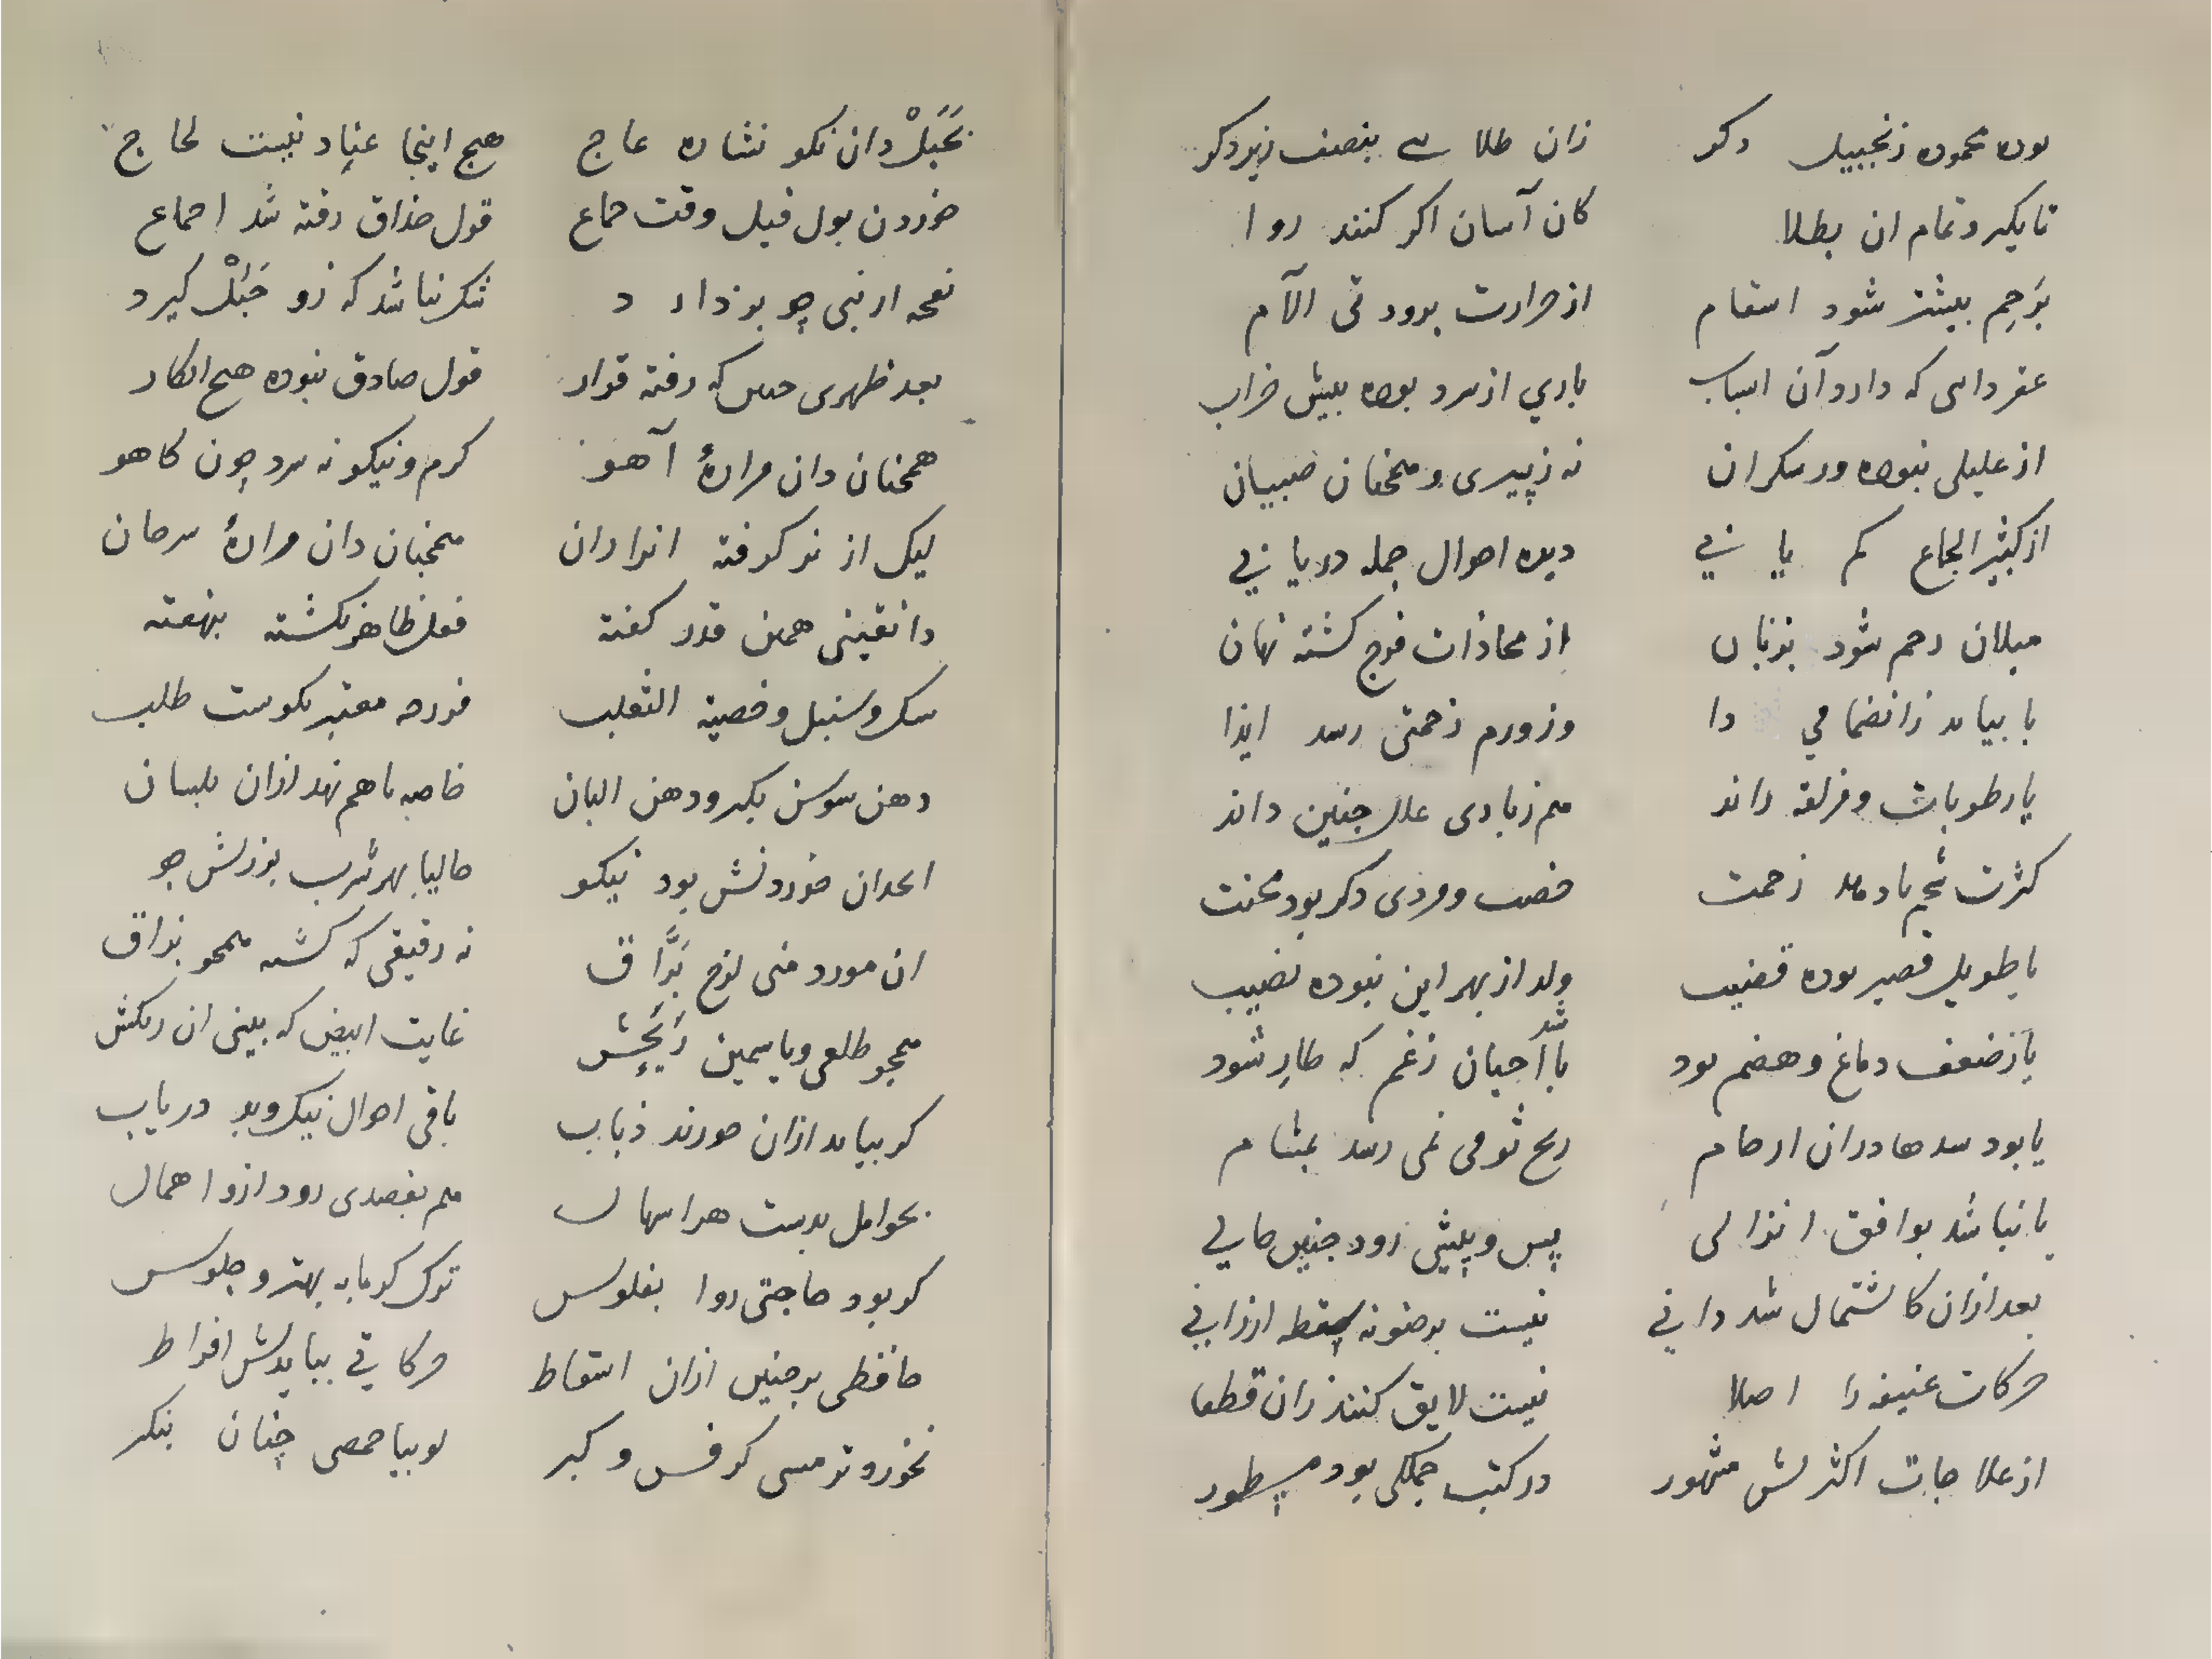 بوده محموده زنجبیل دکر زان طلا سے بنصف زیر دکر
تا بکیرد تمام ان بطلا کان آسان اکر کنند روا
برحم بیشتر شود اسقام از حرارت برودتی الآم
عقر دانی که دارد آن اسباب باری از سرد بوده بیش خراب
از علیلی نبوده ور سکران نه ز پیری و همچنان صبیان
از کثیر الجماع کم یا زنے دیده احوال جمله در یا زنے
میلان رحم شود بزنان از محاذات فرج کشته نهان
یا بیاید ز انضمامی را وز ورم زحمتی رسد ایذا
یا رطوبات و مزلقه راند هم زیادی علل جنین داند
کثرت شحم یا دماء زحمت خصب و مردی دکر بود محنت
یا طویل قصیر بوده قضیب ولد از بهر این نبوده نصیب
یا ز ضعف دماغ و هضم بود یا احیان ز غم که طار شود
یا بود سدها دران ارحام ریح ثومی نمی رسد بمشام
یا نباشد بوافق انزالی پس و پیشی رود جنین حالی
بعد ازان کاشتمال شد دانی نیست برضونه سقط ارزانی
حرکات عنیفه را اصلا نیست لایق کنند زان قطعا
از علاجات اکثرش مشهور در کتب جملکی بود مسطور
بحبل دان نکو نشاره عاج هیچ اینجا عناد نیست لحاج
خوردن بول فیل وقت جماع قول حذاق رفته شد اجماع
نفحه ارنبی چو بردارد شک نباشد که زو حبل کیرد
بعد طهری که رفته قرار قول صادق نبوده هیچ انکار
همچنان دان مرارهٔ آهو کرم و نیکو نه سرد چون کاهو
لیک از نر کرفته انرا دان همچنان دان مرارهٔ سرحان
دانقینی همین قدر کفته فعل ظاهر نکشته بنهفته
سک و سنبل و خصیة الثعلب فرزجه معتبر نکوست طلب
دهن سوسن بکیر و دهن البان خاصه باهم نهد ازان بلسان
انجدان خوردنش بود نیکو حالیا بهر شرب بزرش جو
ان مورد منی لزج بزاق نه رقیقی که کشته همچو بزاق
همچو طلعی و یاسمین ریحش غایت ابیض که بینی ان رنکش
کر بیاید ازان خورند ذباب باقی احوال نیک و بد دریاب
بحوامل بدست هر اسهال هم بفصدی رود ازو اهمال
کر بود حاجتی روا بفلوس ترک کرمابه بهتر و جلوس
حافظی بر جنین ازان اسقاط حرکاتی بیایدش افراط
نخورد ترمسی کرفس و کبر لوبیا حمصی چنان بنکر